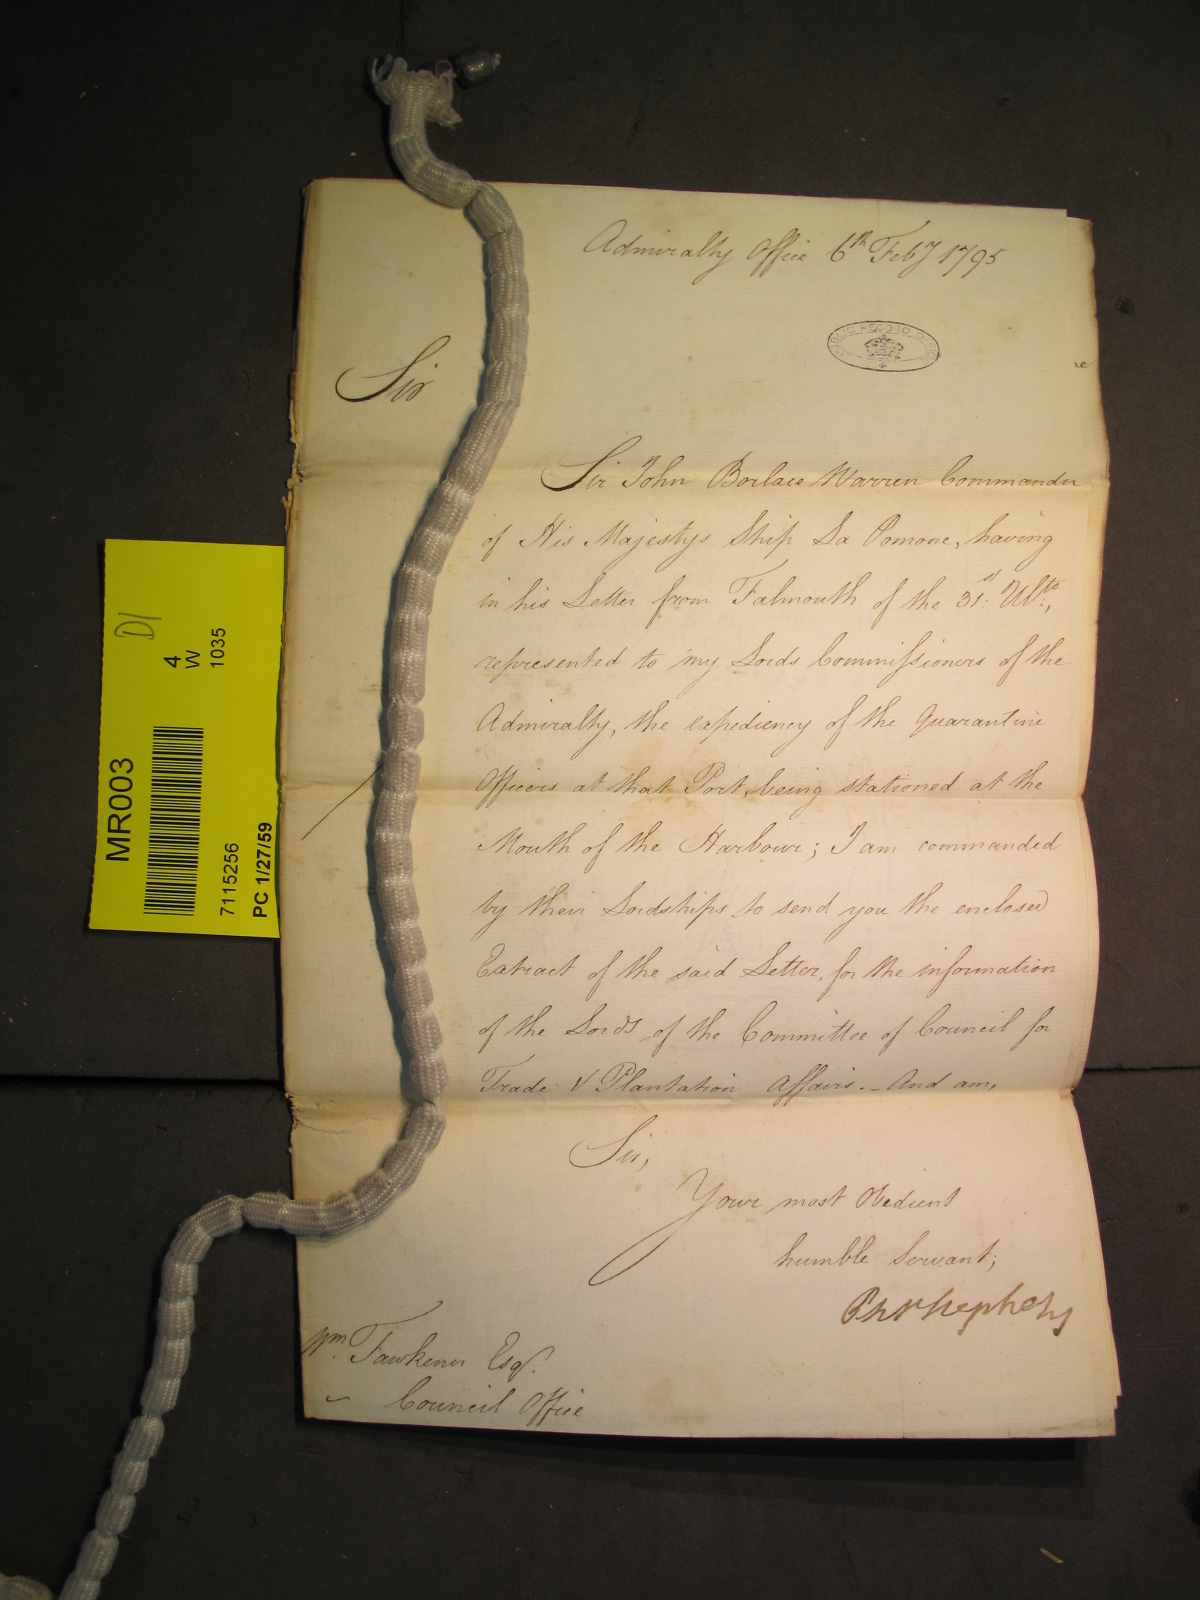 Admiralty Office 6th Feby 1795
PUBLIC RECORD OFFICE
Sir
Sir John Borlace Warren Commander
of His Majestys Ship La Pomone, having
in his Letter from Falmouth of the 31st: Ulto:,
represented to my Lords Commissioners of the
Admiralty, the expediency of the Quarantine
Officers at that Port, being stationed at the
Mouth of the Harbour; I am commanded
by their Lordships to send you the enclosed
Extract of the said Letter, for the information
of the Lords of the Committee of Council for
Trade & Plantation Affairs. - And am,
Sir,
Your most Obedient
humble Servant;
Ph Stephens
Wm. Fawkener Esqr.
Council Office
MR003
D1
4
W
1035
7115256
PC 1/27/59